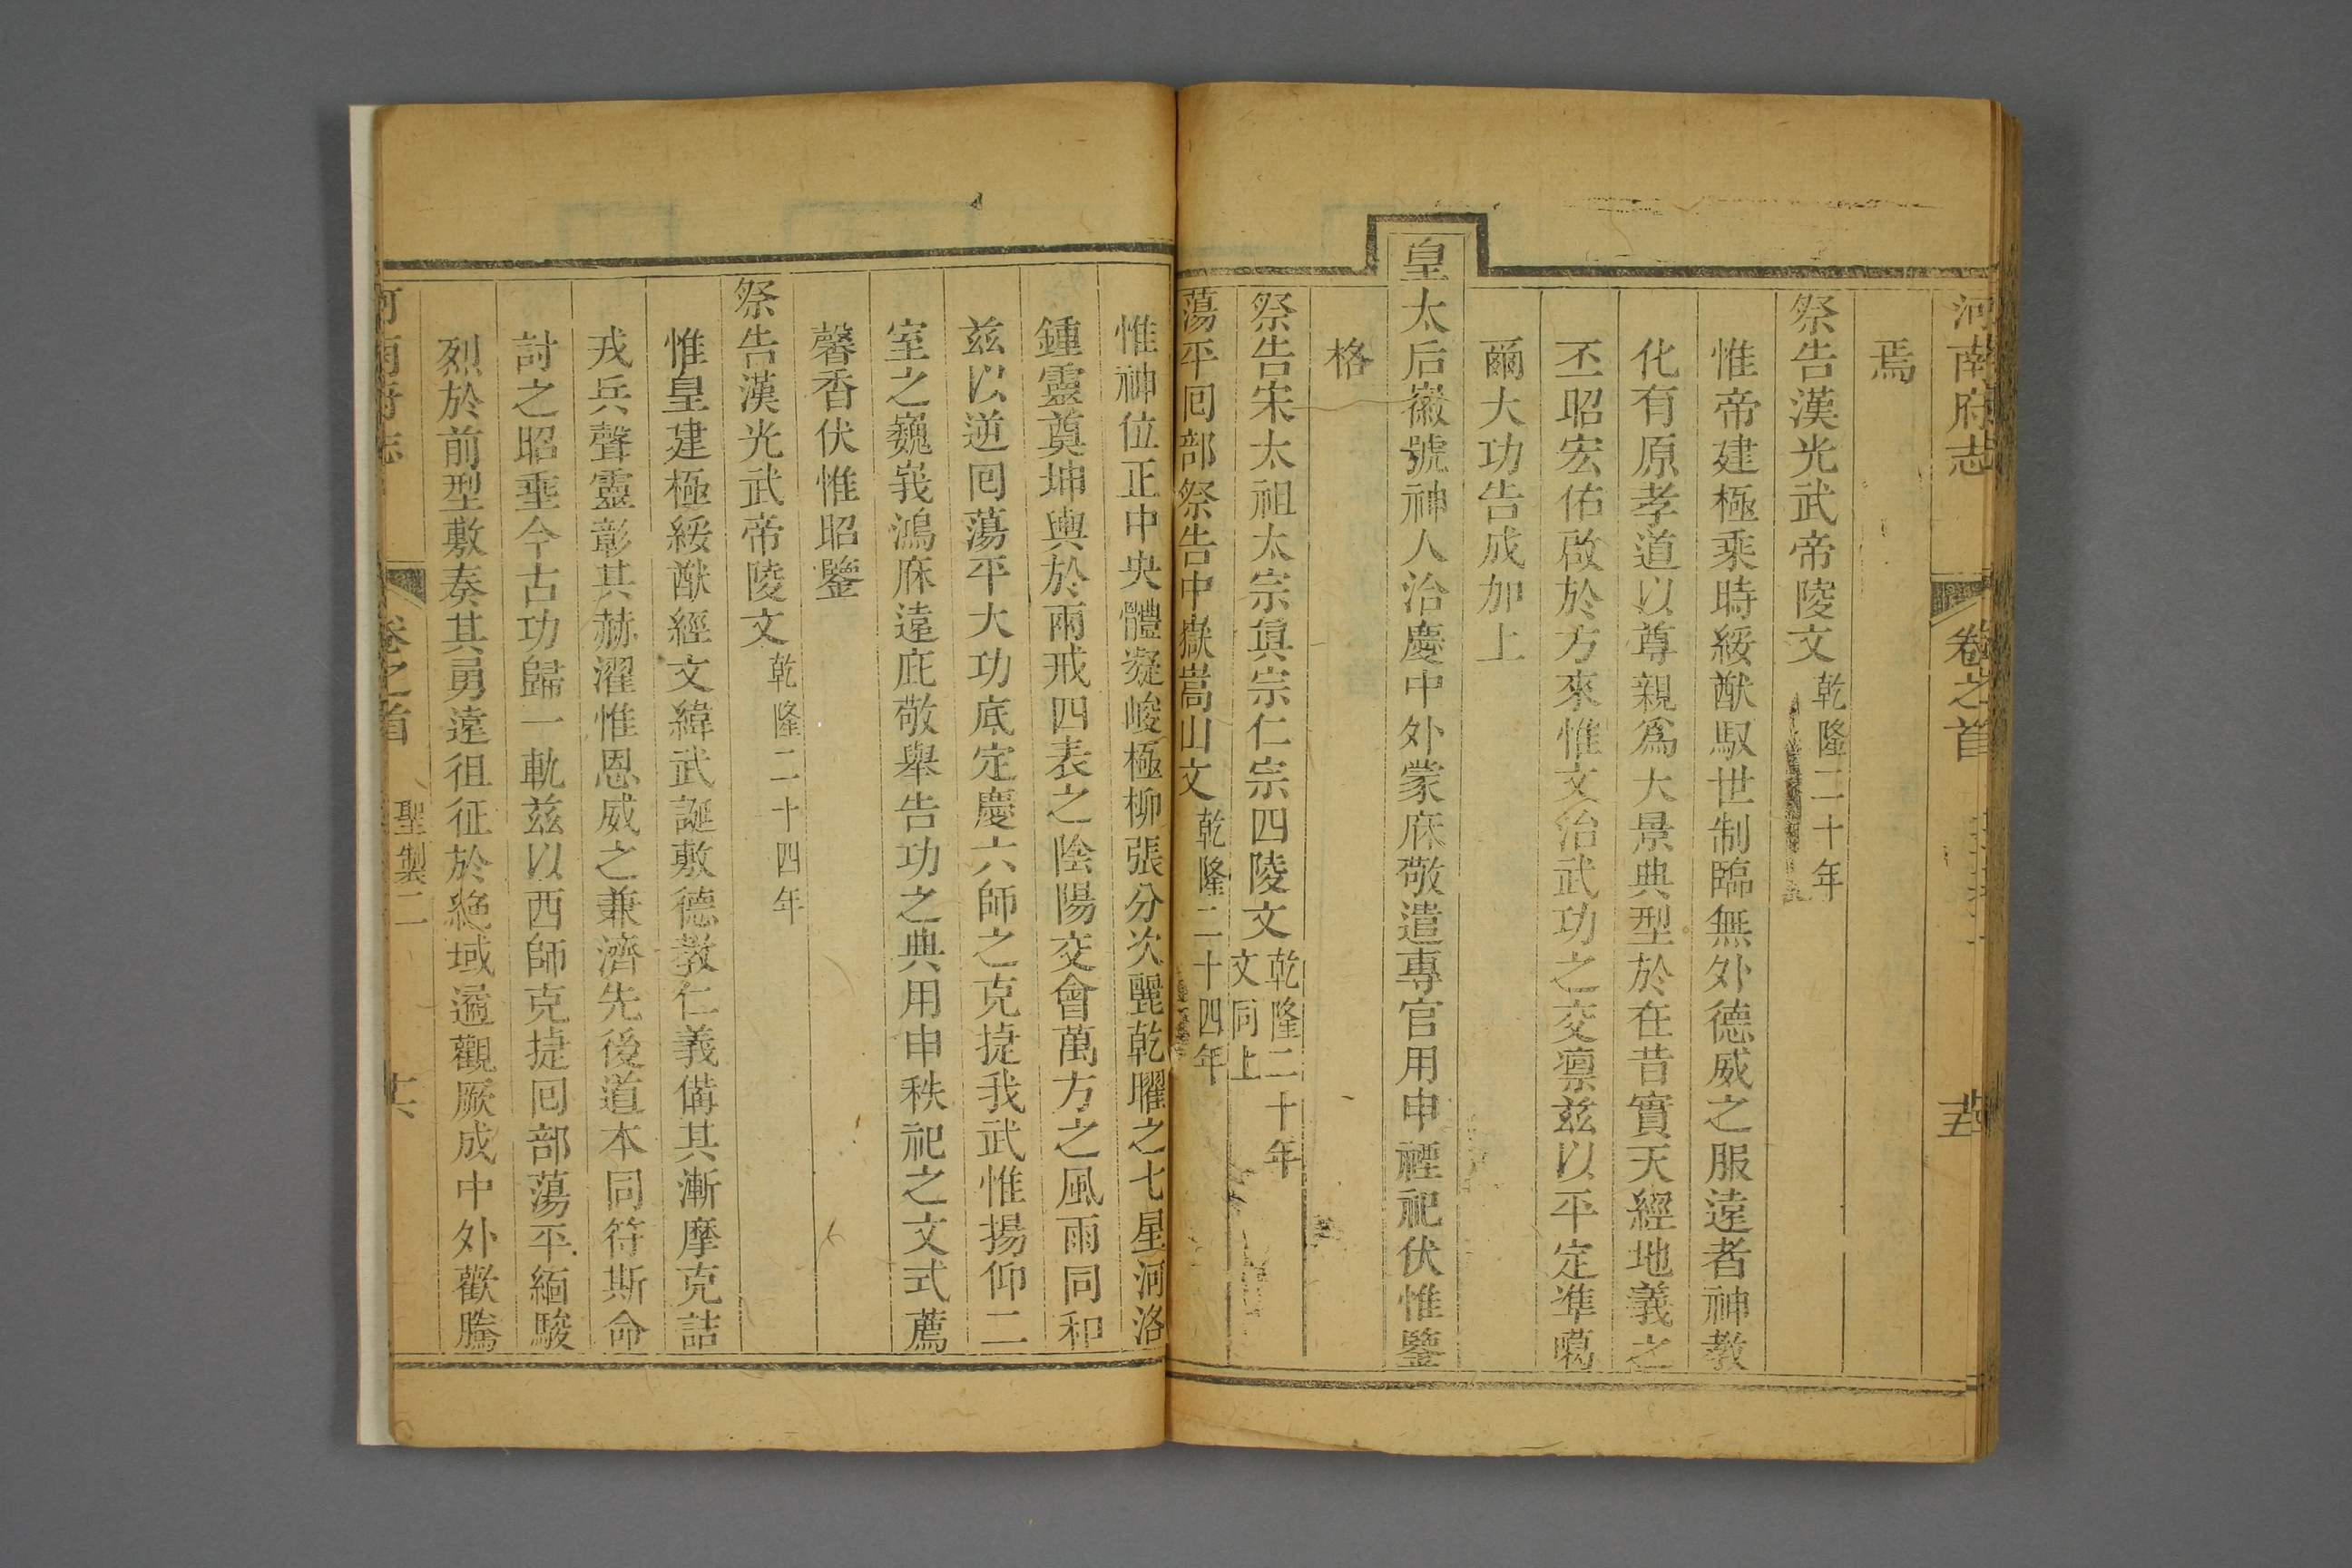 河南府志 卷之首
焉
祭告漢光武帝陵文乾隆二十年
惟帝建極乘時綏猷馭世制臨無外德威之服遠者神教
化有原孝道以尊親爲大景典型於在昔實天經地義之
丕昭宏佑啟於方來惟文治武功之交凛兹以平定準噶
爾大功告成加上
皇太后徽號神人洽慶中外蒙庥敬遣專官用申禋祀伏惟鑒
格
祭告宋太祖太宗眞宗仁宗四陵文乾隆二十年
文同上
蕩平囘部祭告中嶽嵩山文乾隆二十四年
惟神位正中央體凝峻極柳張分次麗乾曜之七星河洛
鍾靈奠坤輿於兩戒四表之陰陽交會萬方之風雨同和
兹以逆囘蕩平大功底定慶六師之克捷我武惟揚仰二
室之巍峩鴻庥遠庇敬舉告功之典用申秩祀之文式薦
馨香伏惟昭鑒
祭告漢光武帝陵文乾隆二十四年
惟皇建極綏猷經文緯武誕敷德教仁義備其漸摩克詰
戎兵聲靈彰其赫濯惟恩威之兼濟先後道本同符斯命
討之昭垂今古功歸一軌兹以西師克捷囘部蕩平緬駿
烈於前型敷奏其勇遠徂征於絶域遹觀厥成中外歡騰
河南府志 卷之首 聖製二